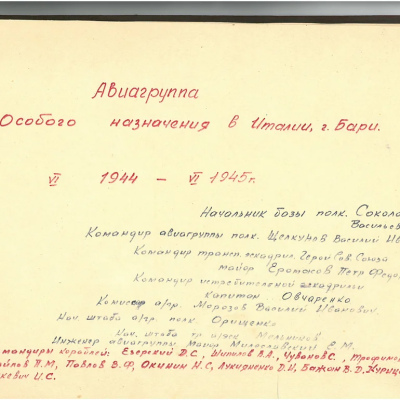 Авиагруппа
Особого назначения в Италии, г. Бари.
VI 1944 — VI 1945г.
Начальник базы полк. Соколо
Василье
Командир авиагруппы полк. Щелкунов Василий Ив
Командир трансп. эскадрил. Герой Сов. Союза
майор Еромасов Петр Федо
Командир истребительной эскадрили
капитан Овчаренко
Комиссар а/гр. Морозов Василий Иванович
Нач штаба а/гр. полк. Орищенко
Нач. штаба тр Мельников
Инженер авиагруппы майор Милославский Е.М.
мандиры кораблей: Езерский Д.С., Шипилов В.А., Чуванов С., Трофимо
йлов П.М, Павлов В.Ф, Окинин Н.С, Лукирненко П.И, Бажан В.Д, Куриц
хевич И.С.